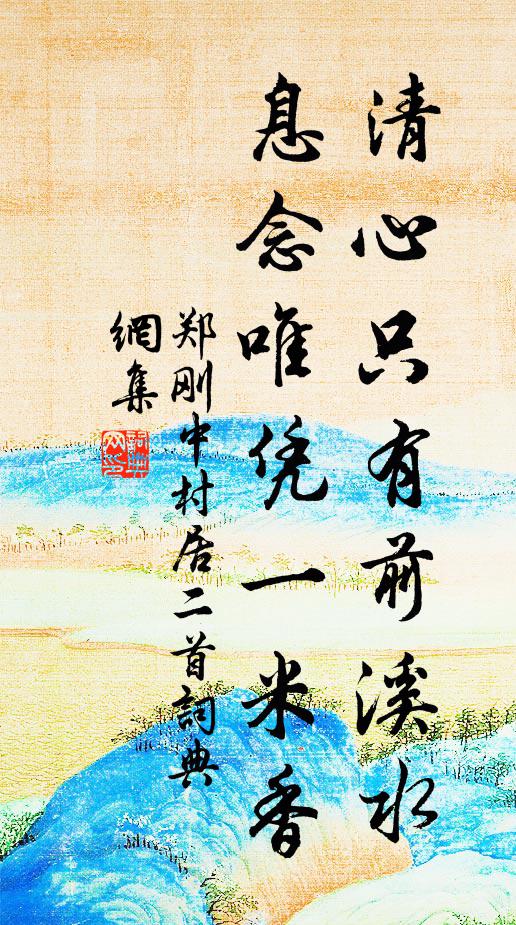 清心只有前溪水
息念唯凭一米香
郑刚中村居二首詞典
網集